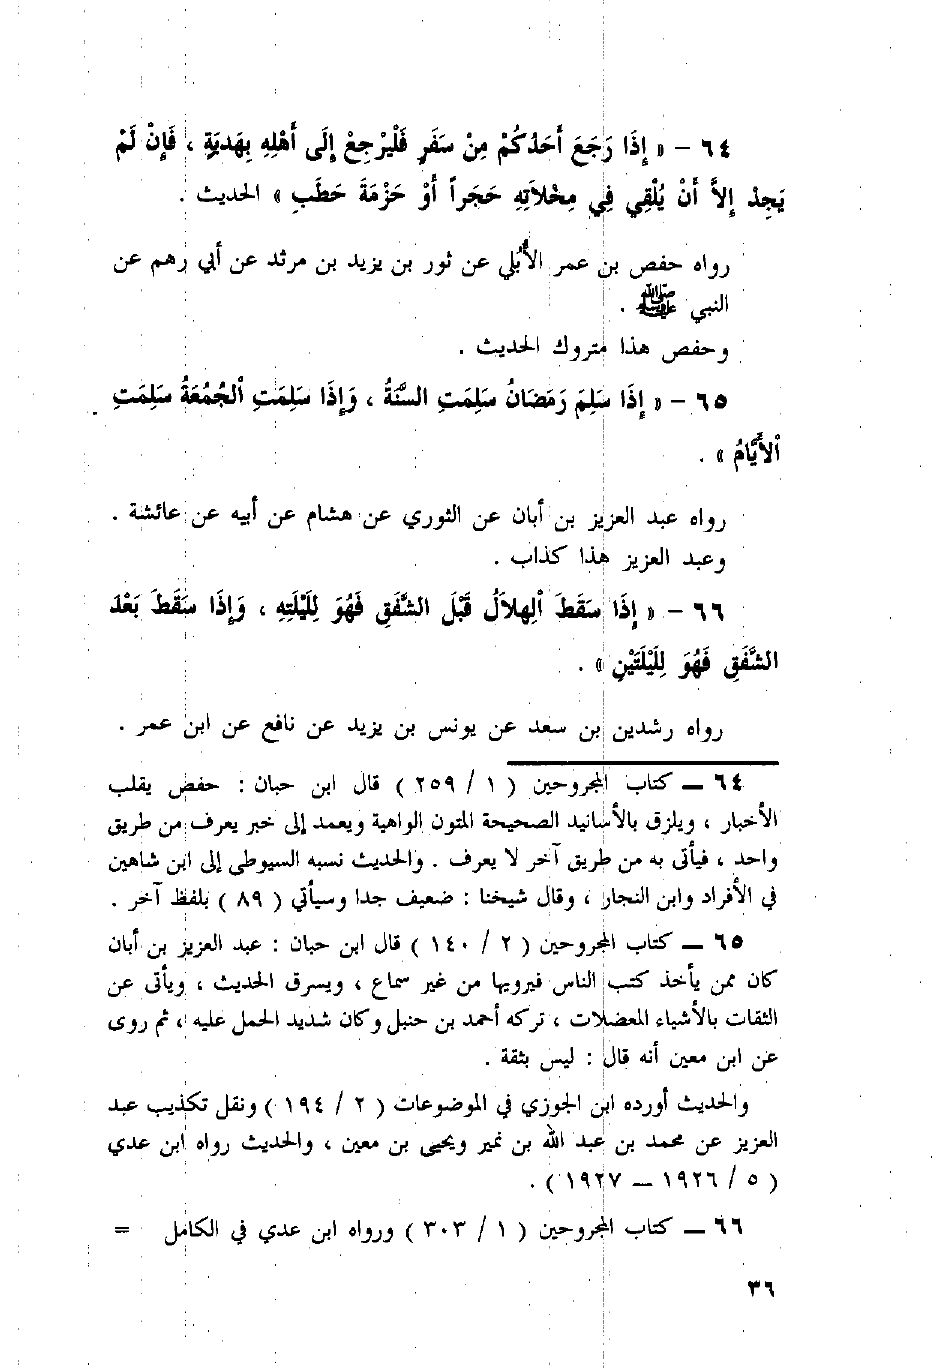 ٦٤ – « إِذَا رَجَعَ أَحَدُكُمْ مِنْ سَفَرٍ فَلْيَرْجِعْ إِلَى أَهْلِهِ بِهَدِيَّةٍ ، فَإِنْ لَمْ
يَجِدْ إِلاَّ أَنْ يُلْقِي فِي مِخْلاَتِهِ حَجَراً أَوْ حَزْمَةَ حَطَبٍ » الحديث .
رواه حفص بن عمر الأُبُلي عن ثور بن يزيد بن مرثد عن أبي رهم عن
النبي ﷺ .
وحفص هذا متروك الحديث .
٦٥ – « إِذَا سَلِمَ رَمَضَانُ سَلِمَتِ السَّنَةُ ، وَإِذَا سَلِمَتِ ٱلْجُمُعَةُ سَلِمَتِ
ٱلأَيَّامُ » .
رواه عبد العزيز بن أبان عن الثوري عن هشام عن أبيه عن عائشة .
وعبد العزيز هذا كذاب .
٦٦ – « إِذَا سَقَطَ ٱلهِلاَلُ قَبْلَ الشَّفَقِ فَهُوَ لِلَيْلَتِهِ ، وَإِذَا سَقَطَ بَعْدَ
الشَّفَقِ فَهُوَ لِلَيْلَتَيْنِ » .
رواه رشدين بن سعد عن يونس بن يزيد عن نافع عن ابن عمر .
٦٤ — كتاب المجروحين ( ١ / ٢٥٩ ) قال ابن حبان : حفص يقلب
الأخبار ، ويلزق بالأسانيد الصحيحة المتون الواهية ويعمد إلى خبر يعرف من طريق
واحد ، فيأتى به من طريق آخر لا يعرف . والحديث نسبه السيوطى إلى ابن شاهين
في الأفراد وابن النجار ، وقال شيخنا : ضعيف جدا وسيأتي ( ٨٩ ) بلفظ آخر .
٦٥ — كتاب المجروحين ( ٢ / ١٤٠ ) قال ابن حبان : عبد العزيز بن أبان
كان ممن يأخذ كتب الناس فيرويها من غير سماع ، ويسرق الحديث ، ويأتى عن
الثقات بالأشياء المعضلات ، تركه أحمد بن حنبل وكان شديد الحمل عليه ، ثم روى
عن ابن معين أنه قال : ليس بثقة .
والحديث أورده ابن الجوزي في الموضوعات ( ٢ / ١٩٤ ) ونقل تكذيب عبد
العزيز عن محمد بن عبد الله بن نمير ويحيى بن معين ، والحديث رواه ابن عدي
( ٥ / ١٩٢٦ — ١٩٢٧ ) .
٦٦ — كتاب المجروحين ( ١ / ٣٠٣ ) ورواه ابن عدي في الكامل =
٣٦